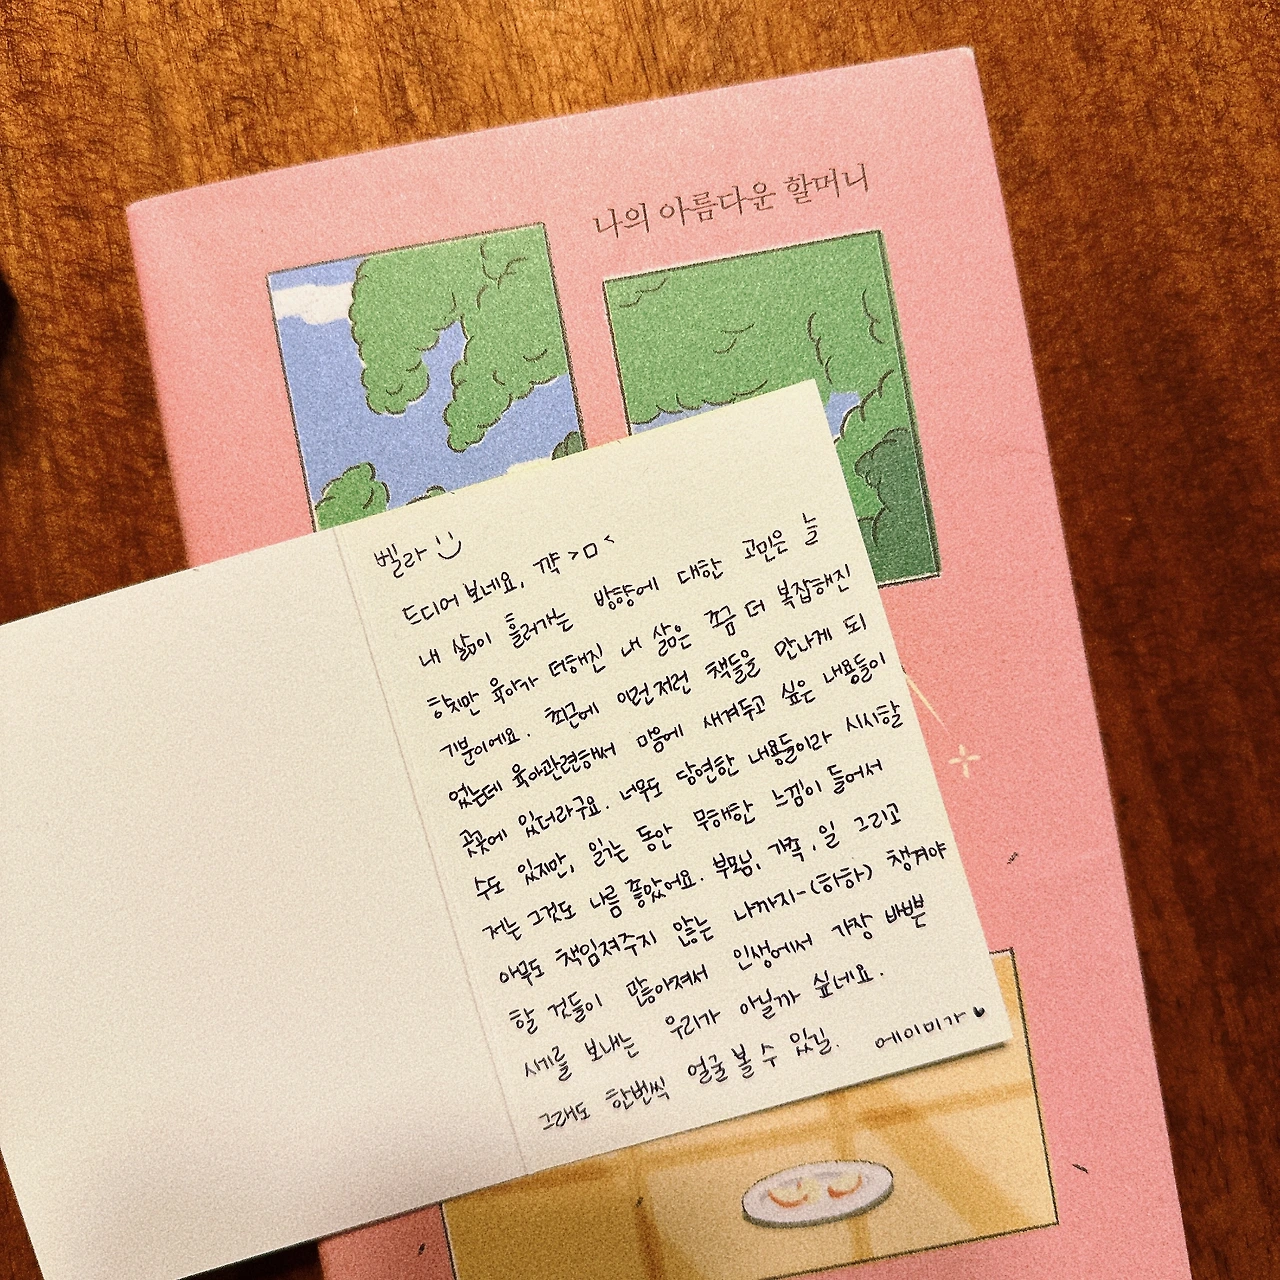 나의 아름다운 할머니
벨라
드디어 보네요, 꺅 >ㅁ<
내 삶이 흘러가는 방향에 대한 고민은 늘
하지만 육아가 더해진 내 삶은 조금 더 복잡해진
기분이에요. 최근에 이런저런 책들을 만나게 되
었는데 육아관련해서 마음에 새겨두고 싶은 내용들이
곳곳에 있더라구요. 너무도 당연한 내용들이라 시시할
수도 있지만, 읽는 동안 무해한 느낌이 들어서
저는 그것도 나름 좋았어요. 부모님, 가족, 일 그리고
아무도 책임져주지 않는 나까지-(하하) 챙겨야
할 것들이 많아져서 인생에서 가장 바쁜
새를 보내는 우리가 아닐까 싶네요.
그래도 한번씩 얼굴 볼 수 있길. 에이미가